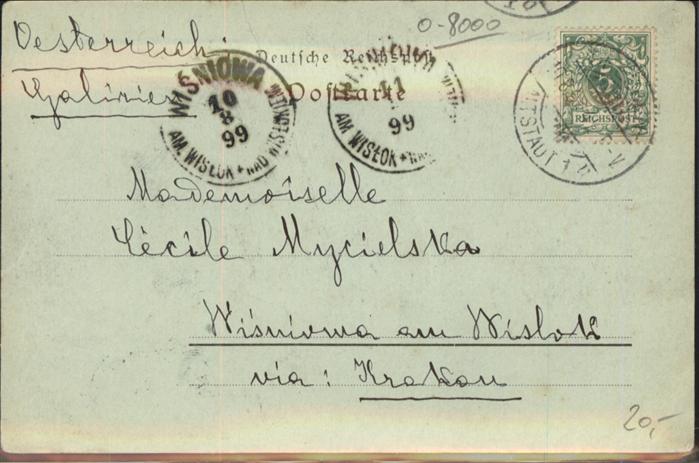 0-8000
Oesterreich.
Galizien
Deutsche Reichspost
Postkarte
WIŚNIOWA
10
8
99
AM WISŁOK * NAD WISŁOKIEM
WIŚNIOWA
11
99
AM WISŁOK * NAD
5
REICHSPOST
ALTSTADT 1
Mademoiselle
Cécile Mycielska
Wiśniowa am Wislok
via: Krakau
20,-